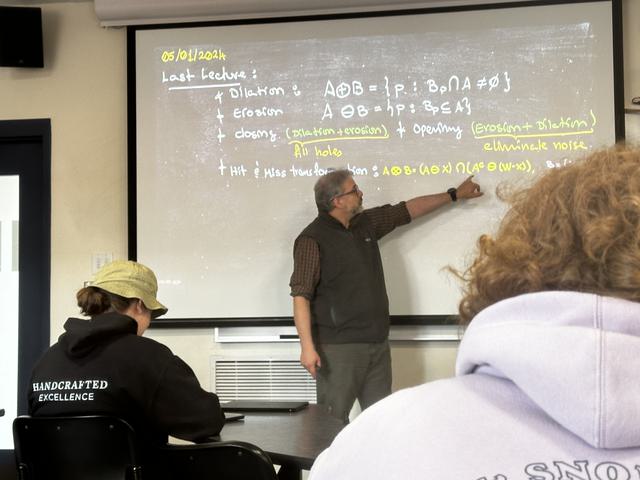 05/01/2024
Last Lecture:
* Dilation: A⊕B = {p : Bp∩A ≠∅}
* Erosion A ⊖B = {p : Bp⊆A}
* closing (Dilation+erosion) * Opening (Erosion+Dilation)
fill holes eliminate noise.
* Hit & Miss transformation: A⊗B=(A⊖X)∩(Aᶜ⊖(W-X)), B=
HANDCRAFTED
EXCELLENCE
SNO